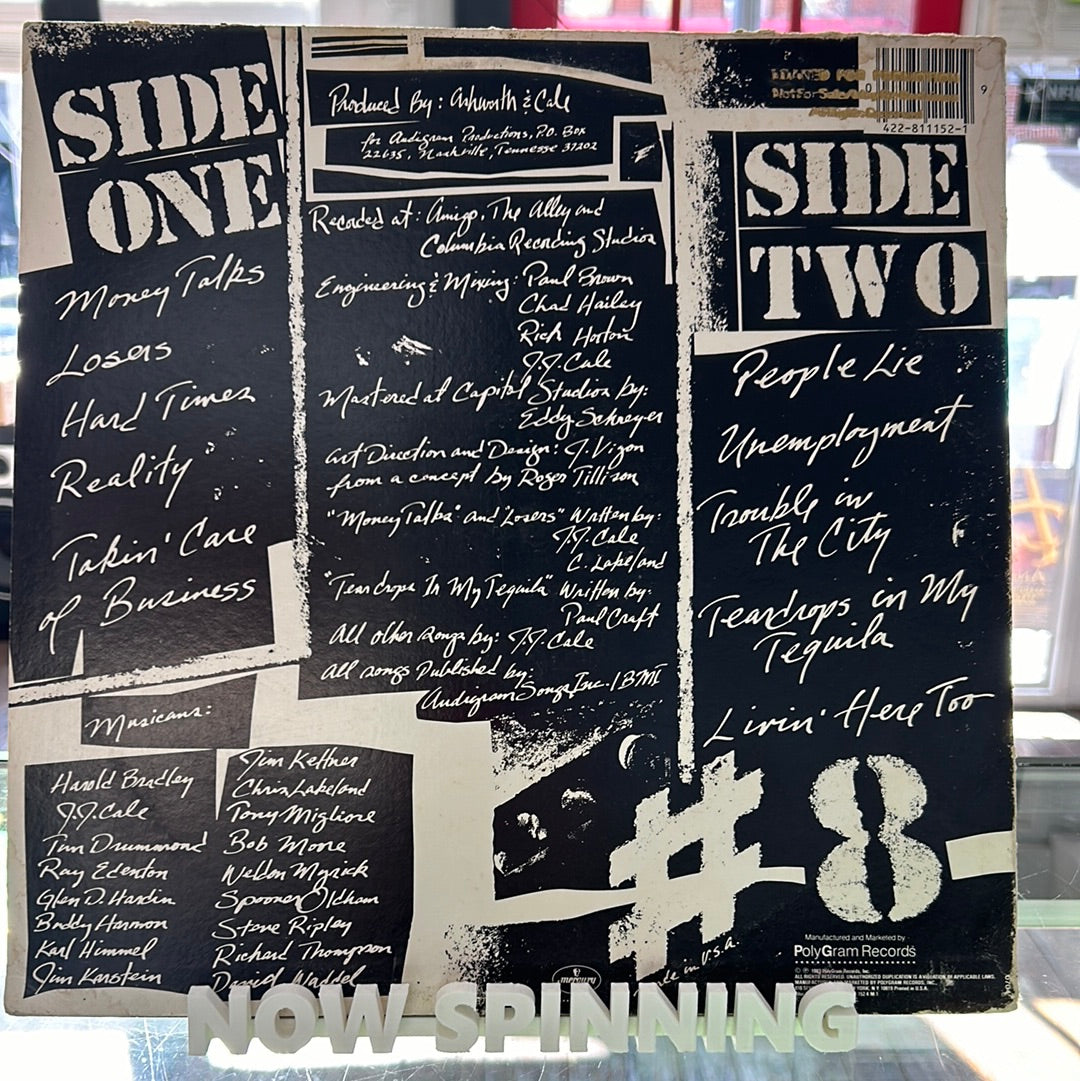 SIDE
ONE
Money Talks
Losers
Hard Times
Reality
Takin' Care
of Business
Produced By: Ashworth & Cale
for Audigram Productions, P.O. Box
22635, Nashville, Tennessee 37202
Recorded at: Amigo, The Alley and
Columbia Recording Studios
Engineering & Mixing: Paul Brown
Chad Hailey
Rich Horton
J.J. Cale
Mastered at Capitol Studios by:
Eddy Schreyer
Art Direction and Design: J. Vizon
from a concept by Roger Tillison
"Money Talks" and Losers" Written by:
J.J. Cale
C. Lakeland
"Teardrops In My Tequila" Written by:
Paul Craft
All other songs by: J.J. Cale
All songs Published by:
Audigram Songs Inc. / BMI
9
422-811152-1
SIDE
TWO
People Lie
Unemployment
Trouble in
The City
Teardrops in My
Tequila
Livin' Here Too
Musicians:
Harold Bradley
J.J. Cale
Tim Drummond
Ray Edenton
Glen D. Hardin
Buddy Harmon
Karl Himmel
Jim Karstein
Jim Keltner
Chris Lakeland
Tony Migliore
Bob Moore
Weldon Myrick
Spooner Oldham
Steve Ripley
Richard Thompson
David Waddel
#8
mercury
u.s.a.
Manufactured and Marketed by
PolyGram Records
℗ © 1983 PolyGram Records, Inc.
ALL RIGHTS RESERVED. UNAUTHORIZED DUPLICATION IS A VIOLATION OF APPLICABLE LAWS.
NOW SPINNING